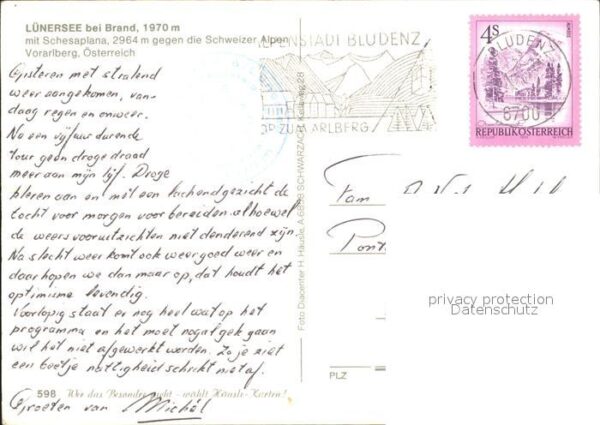 LÜNERSEE bei Brand, 1970 m
mit Schesaplana, 2964 m gegen die Schweizer Alpen
Vorarlberg, Österreich
Gisteren met stralend
weer aangekomen, van-
daag regen en onweer.
Na een vijf uur durende
tour geen droge draad
meer aan mijn lijf. Droge
kleren aan en met een lachend gezicht de
tocht voor morgen voorbereiden alhoewel
de weersvooruitzichten niet denderend zijn.
Na slecht weer komt ook weer goed weer en
daar hopen we dan maar op, dat houdt het
optimisme levendig.
Voorlopig staat er nog heel wat op het
programma en het moet nogal gek gaan
wil het niet afgewerkt worden. Zo je ziet
een beetje nattigheid schrikt niet af.
598 Wer das Besondre sucht - wählt Häusle-Karten!
Groeten van Michèl
Foto Diacenter H. Häusle, A-6858 SCHWARZACH
ALPENSTADT BLUDENZ
ZUM ARLBERG
BLUDENZ
6700
4S
REPUBLIK ÖSTERREICH
Fam
PLZ
privacy protection
Datenschutz